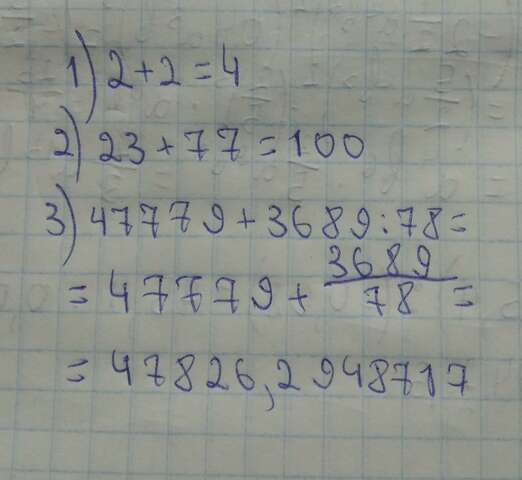 1) 2+2=4
2) 23+77=100
3) 47779+3689:78=
=47779+3689/78=
=47826,2948717